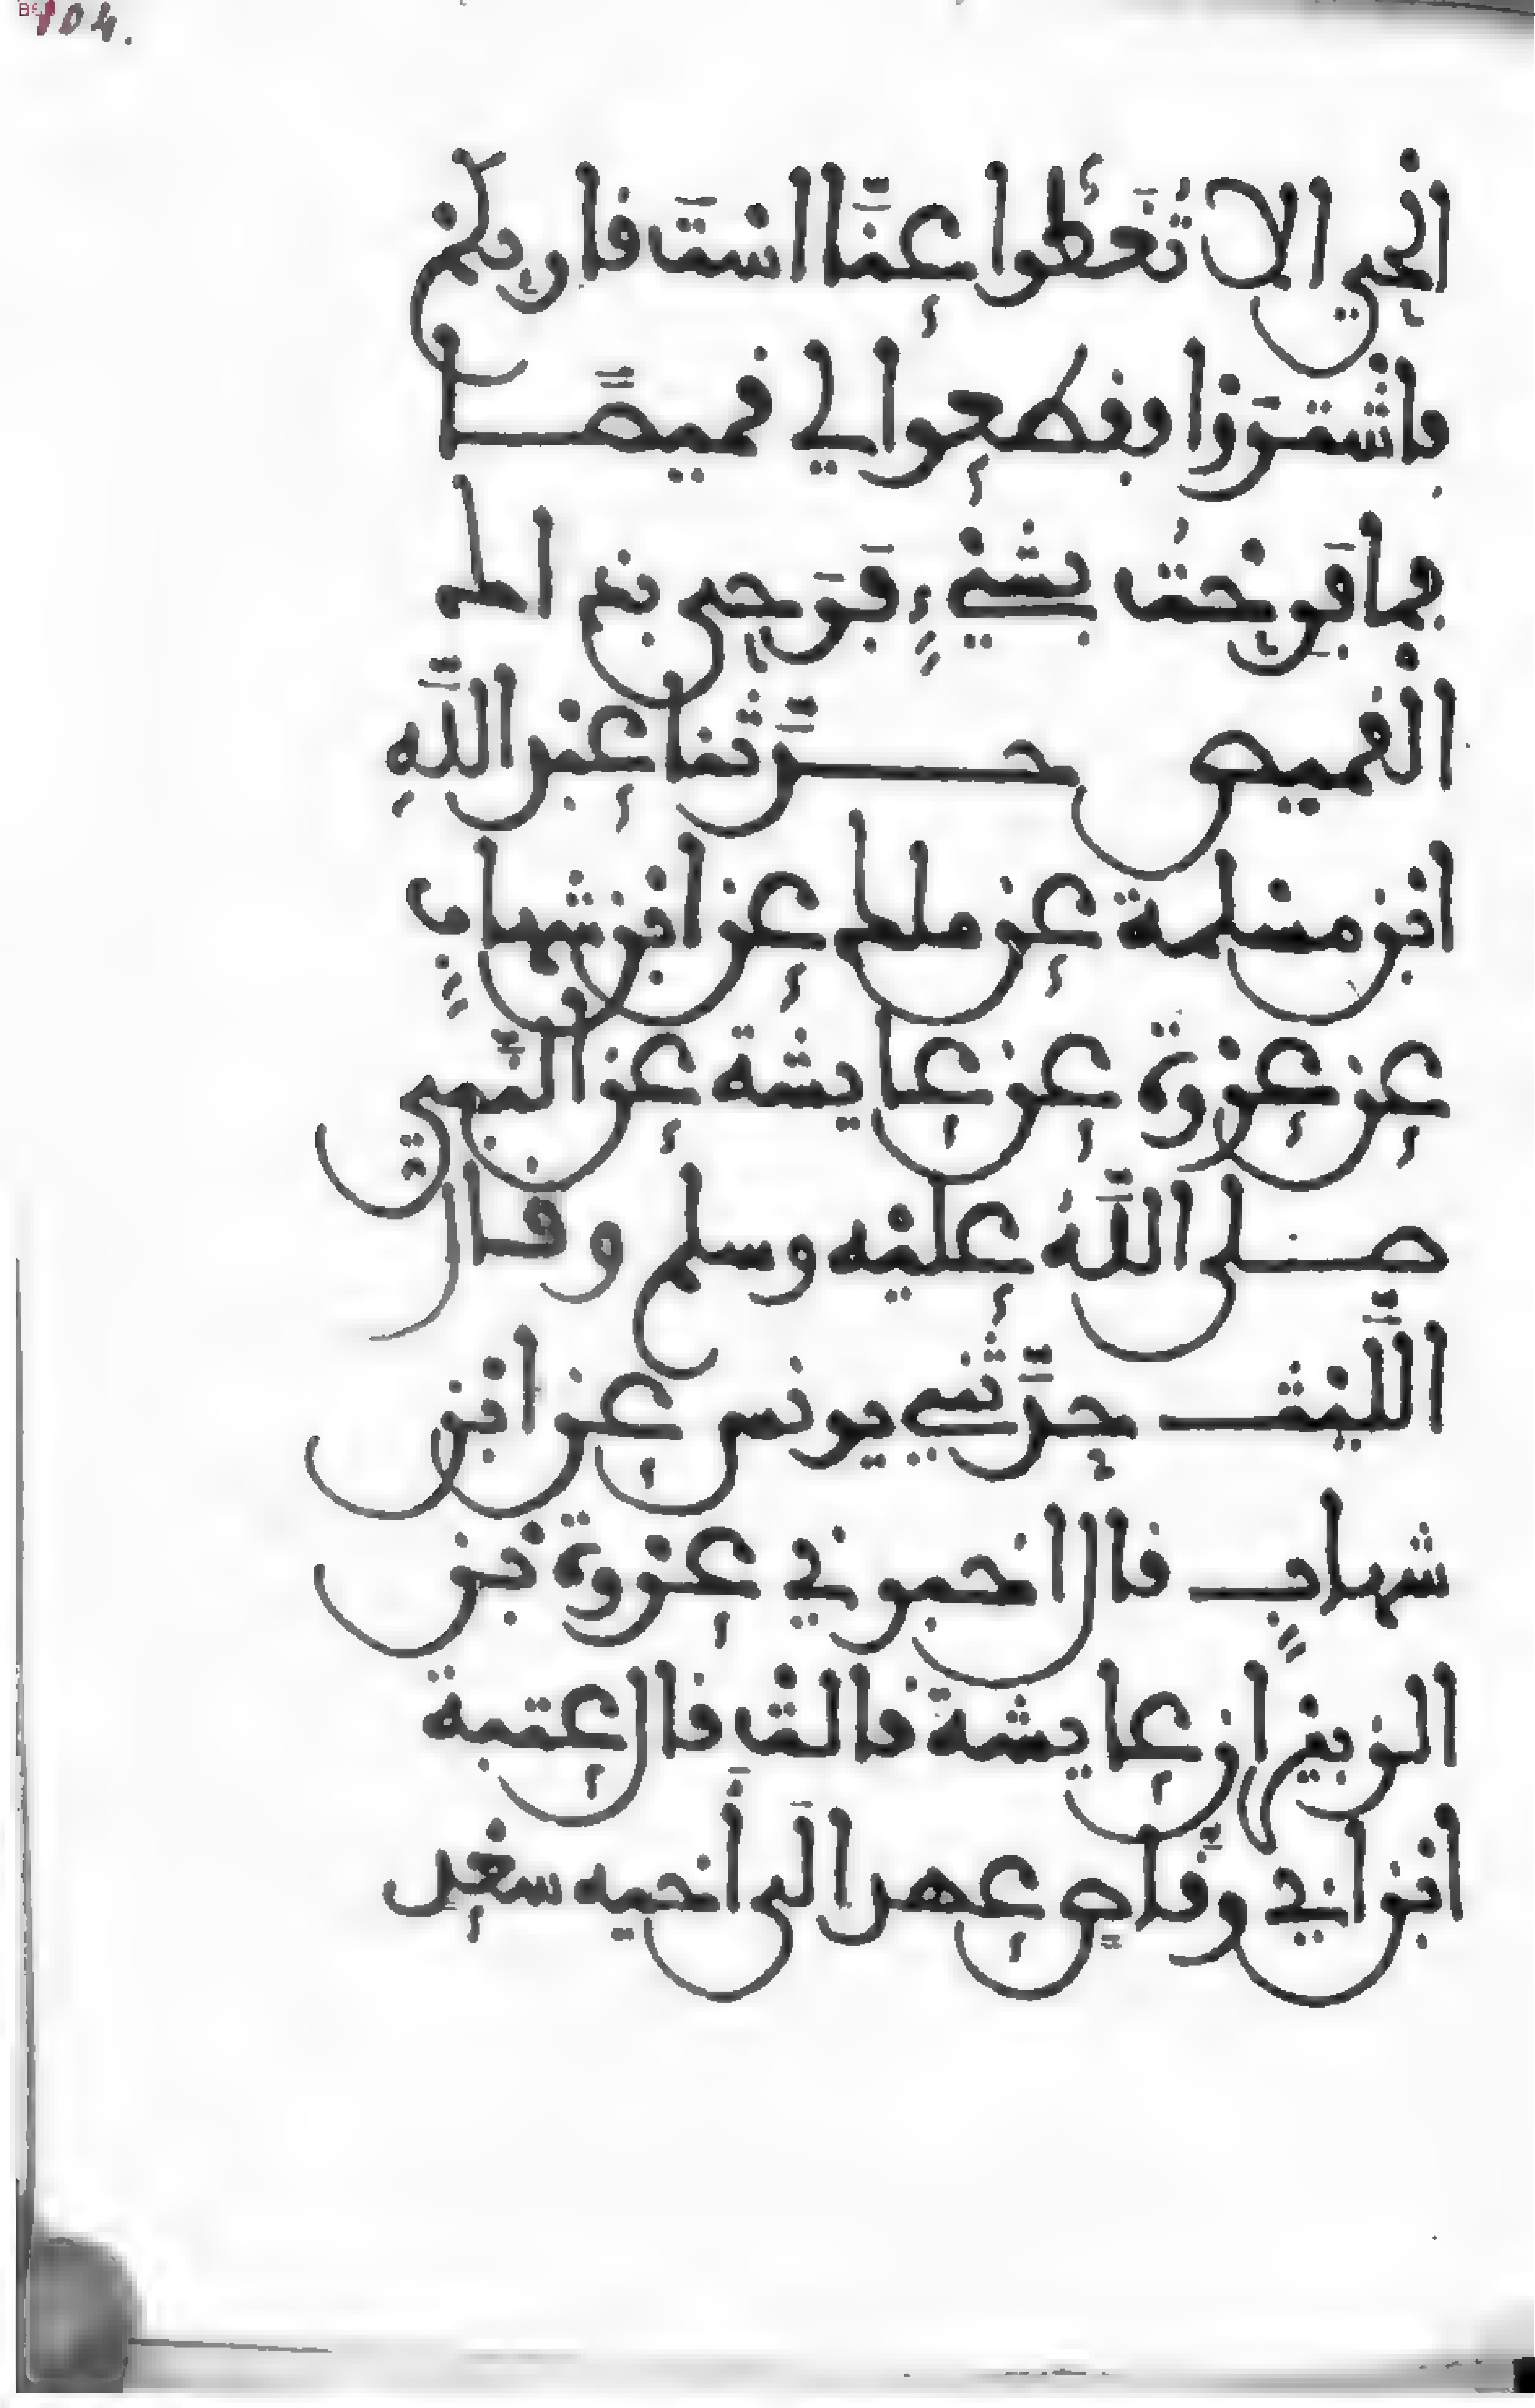 104.
الحي الا تغطوا عنا است قارئكم
فاشتروا فقطعوا لي قميصا
فما فرحت بشيء فرحي بذلك
القميص حدثنا عبد الله
ابن مسلمة عن ملك عن ابن شهاب
عن عروة عن عايشة عن النبي
صلى الله عليه وسلم وقال
الليث حدثني يونس عن ابن
شهاب قال اخبرني عروة بن
الزبير ان عايشة قالت قال عتبة
ابن ابي وقاص عهد الى أخيه سعد